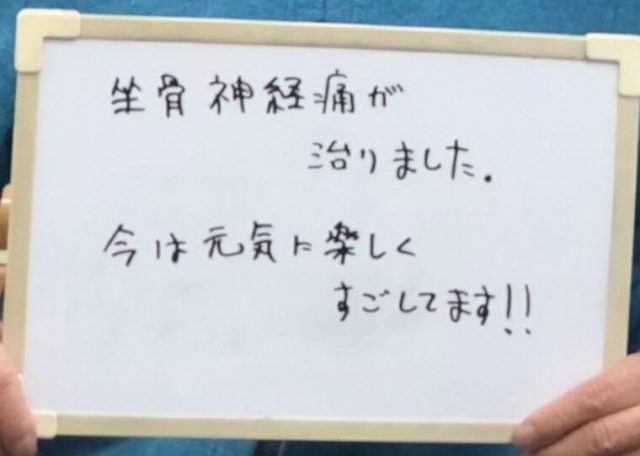 坐骨神経痛が
治りました.
今は元気に楽しく
すごしてます!!